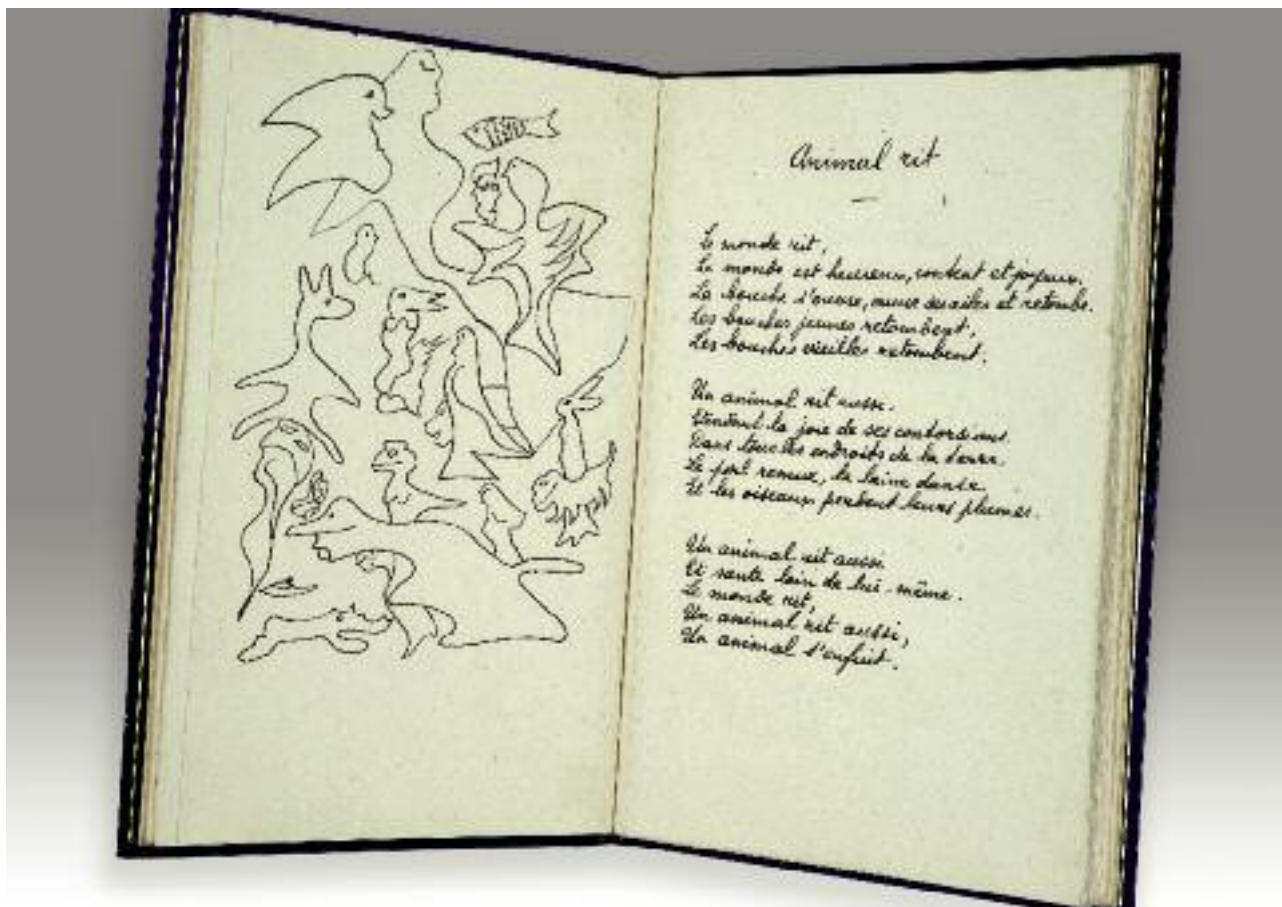 Animal rit
Le monde rit,
Le monde est heureux, content et joyeux.
La bouche s'ouvre, ouvre ses ailes et retombe.
Les bouches jeunes retombent,
Les bouches vieilles retombent.
Un animal rit aussi.
Etendant la joie de ses contorsions.
Dans tous les endroits de la terre
Le poil remue, la laine danse
Et les oiseaux perdent leurs plumes.
Un animal rit aussi
Et saute loin de lui-même.
Le monde rit,
Un animal rit aussi,
Un animal s'enfuit.